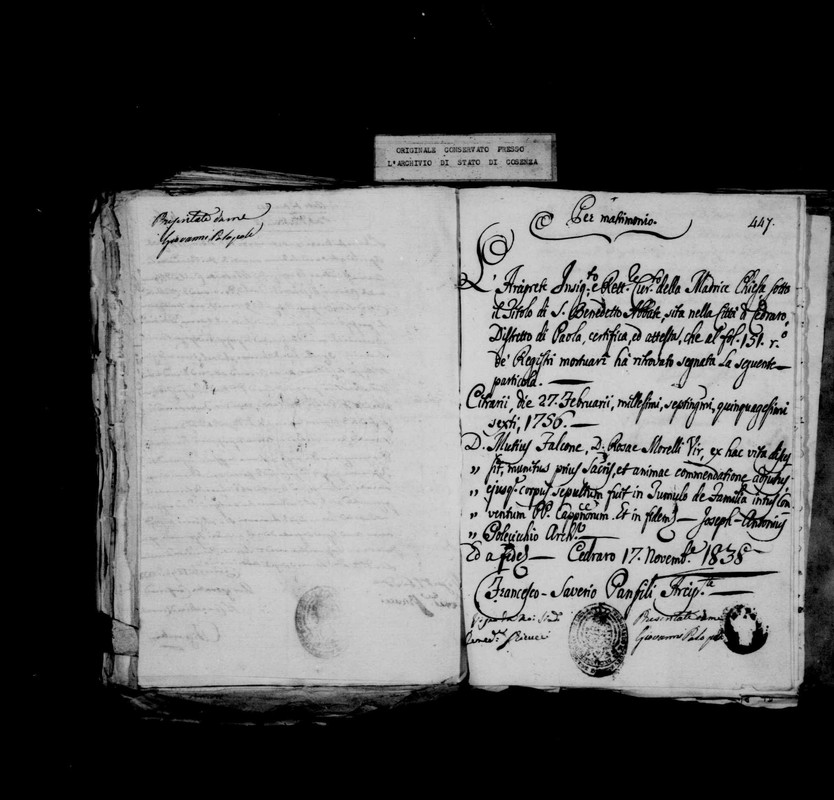 ORIGINALE CONSERVATO PRESSO
L'ARCHIVIO DI STATO DI COSENZA
Presentato da me
Giovanni Palopoli
Per matrimonio.
447.
L'Arciprete Insig.to, e Rett.e Cur.to della Madrice Chiesa sotto
il Titolo di S. Benedetto Abbate, sita nella Città di Cedraro,
Distretto di Paola, certifica, ed attesta, che al fol. 151. r.o
de' Registri mortuari ha ritrovato segnata la seguente
particola.
Citrarii, die 27. Februarii, millesimi, septingmi, quinquagesimi
sexti, 1756.
D. Mutius Falcone, D. Rosae Morelli Vir, ex hac vita disces
" sit, munitus prius Sacris, et animae commendatione adjutus
" ejusq. corpus sepultum fuit in Tumulo de Familia intus Con
" ventum PP. Cappnorum. Et in fidem Joseph-Antonius
" Polevicchio Arch.r
Ed a fede Cedraro 17. Novemb.e 1838
Francesco-Saverio Pansili Arcip.te
Presentato da me
Giovanni Palopoli